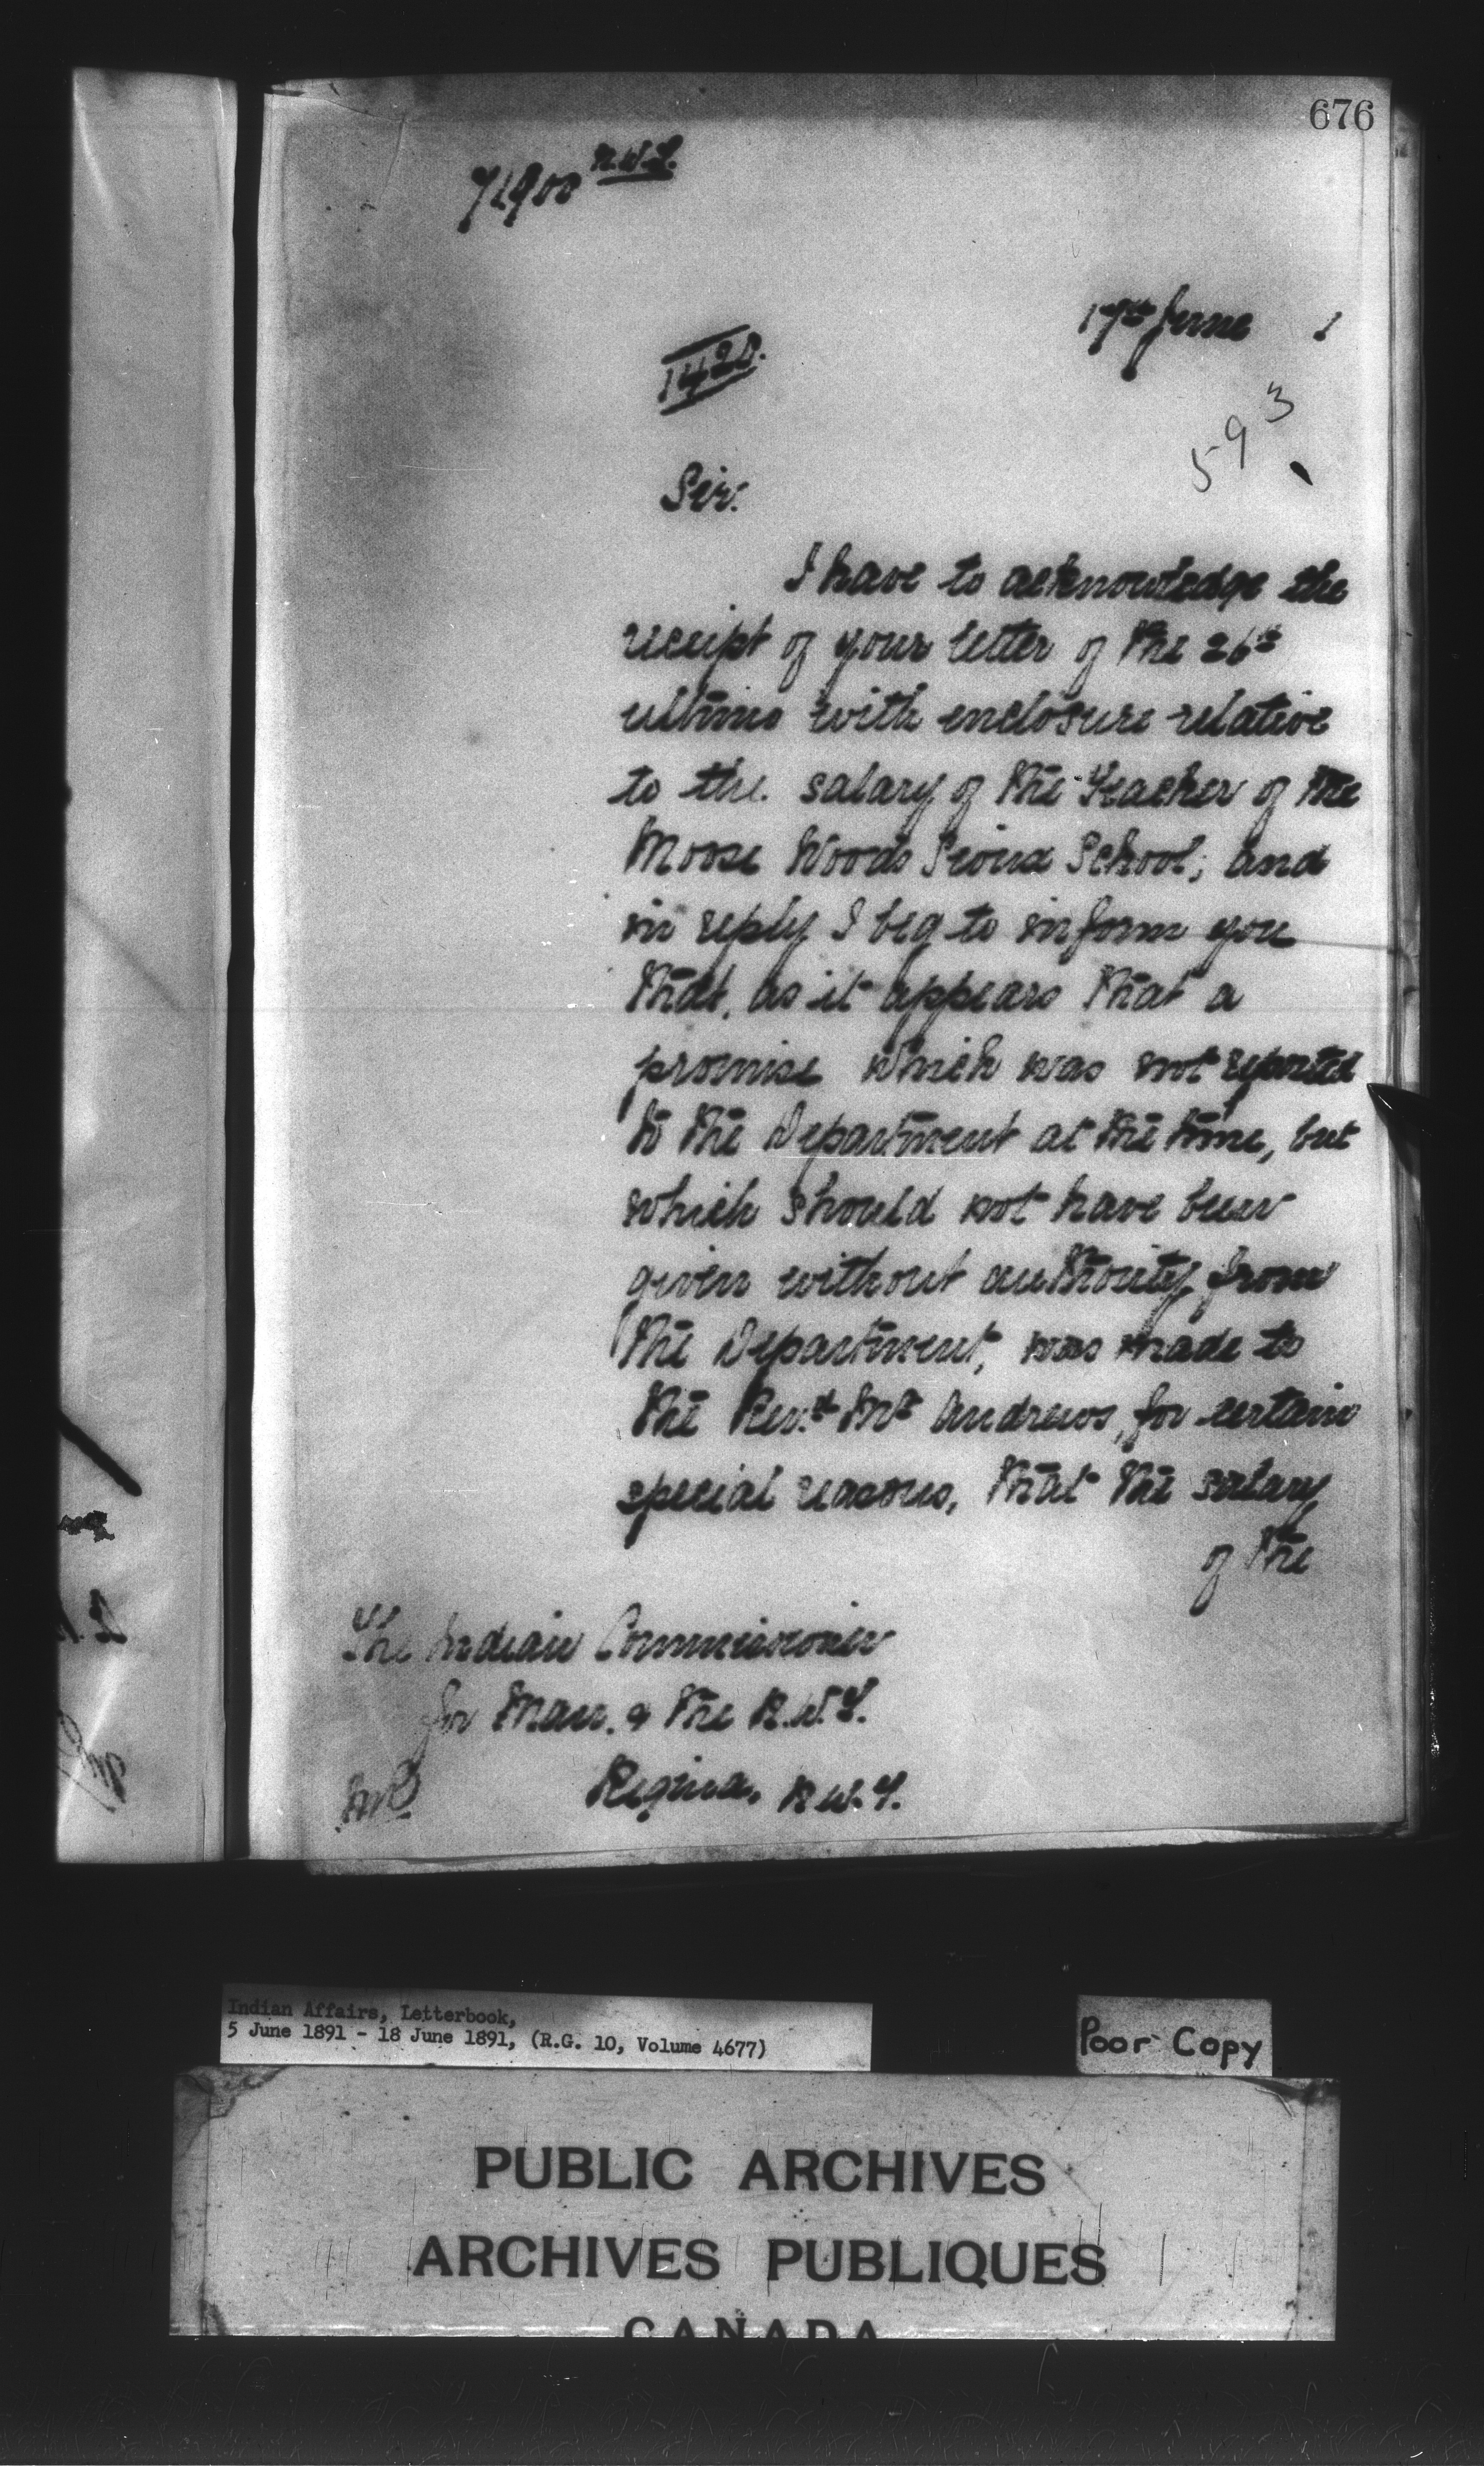 676
71900 N.W.T.
17th June 1
1420.
593
Sir.
I have to acknowledge the
receipt of your letter of the 26th
ultimo with enclosure relative
to the salary of the Teacher of the
Moose Woods Sioux School; and
in reply I beg to inform you
that, as it appears that a
promise which was not reported
to the Department at the time, but
which should not have been
given without authority from
the Department, was made to
the Revd. Mr Andrews, for certain
special reasons, that the salary
of the
The Indian Commissioner
for Man. & the N.W.T.
Regina, N.W.T.
Indian Affairs, Letterbook,
5 June 1891 - 18 June 1891, (R.G. 10, Volume 4677)
Poor Copy
PUBLIC ARCHIVES
ARCHIVES PUBLIQUES
CANADA